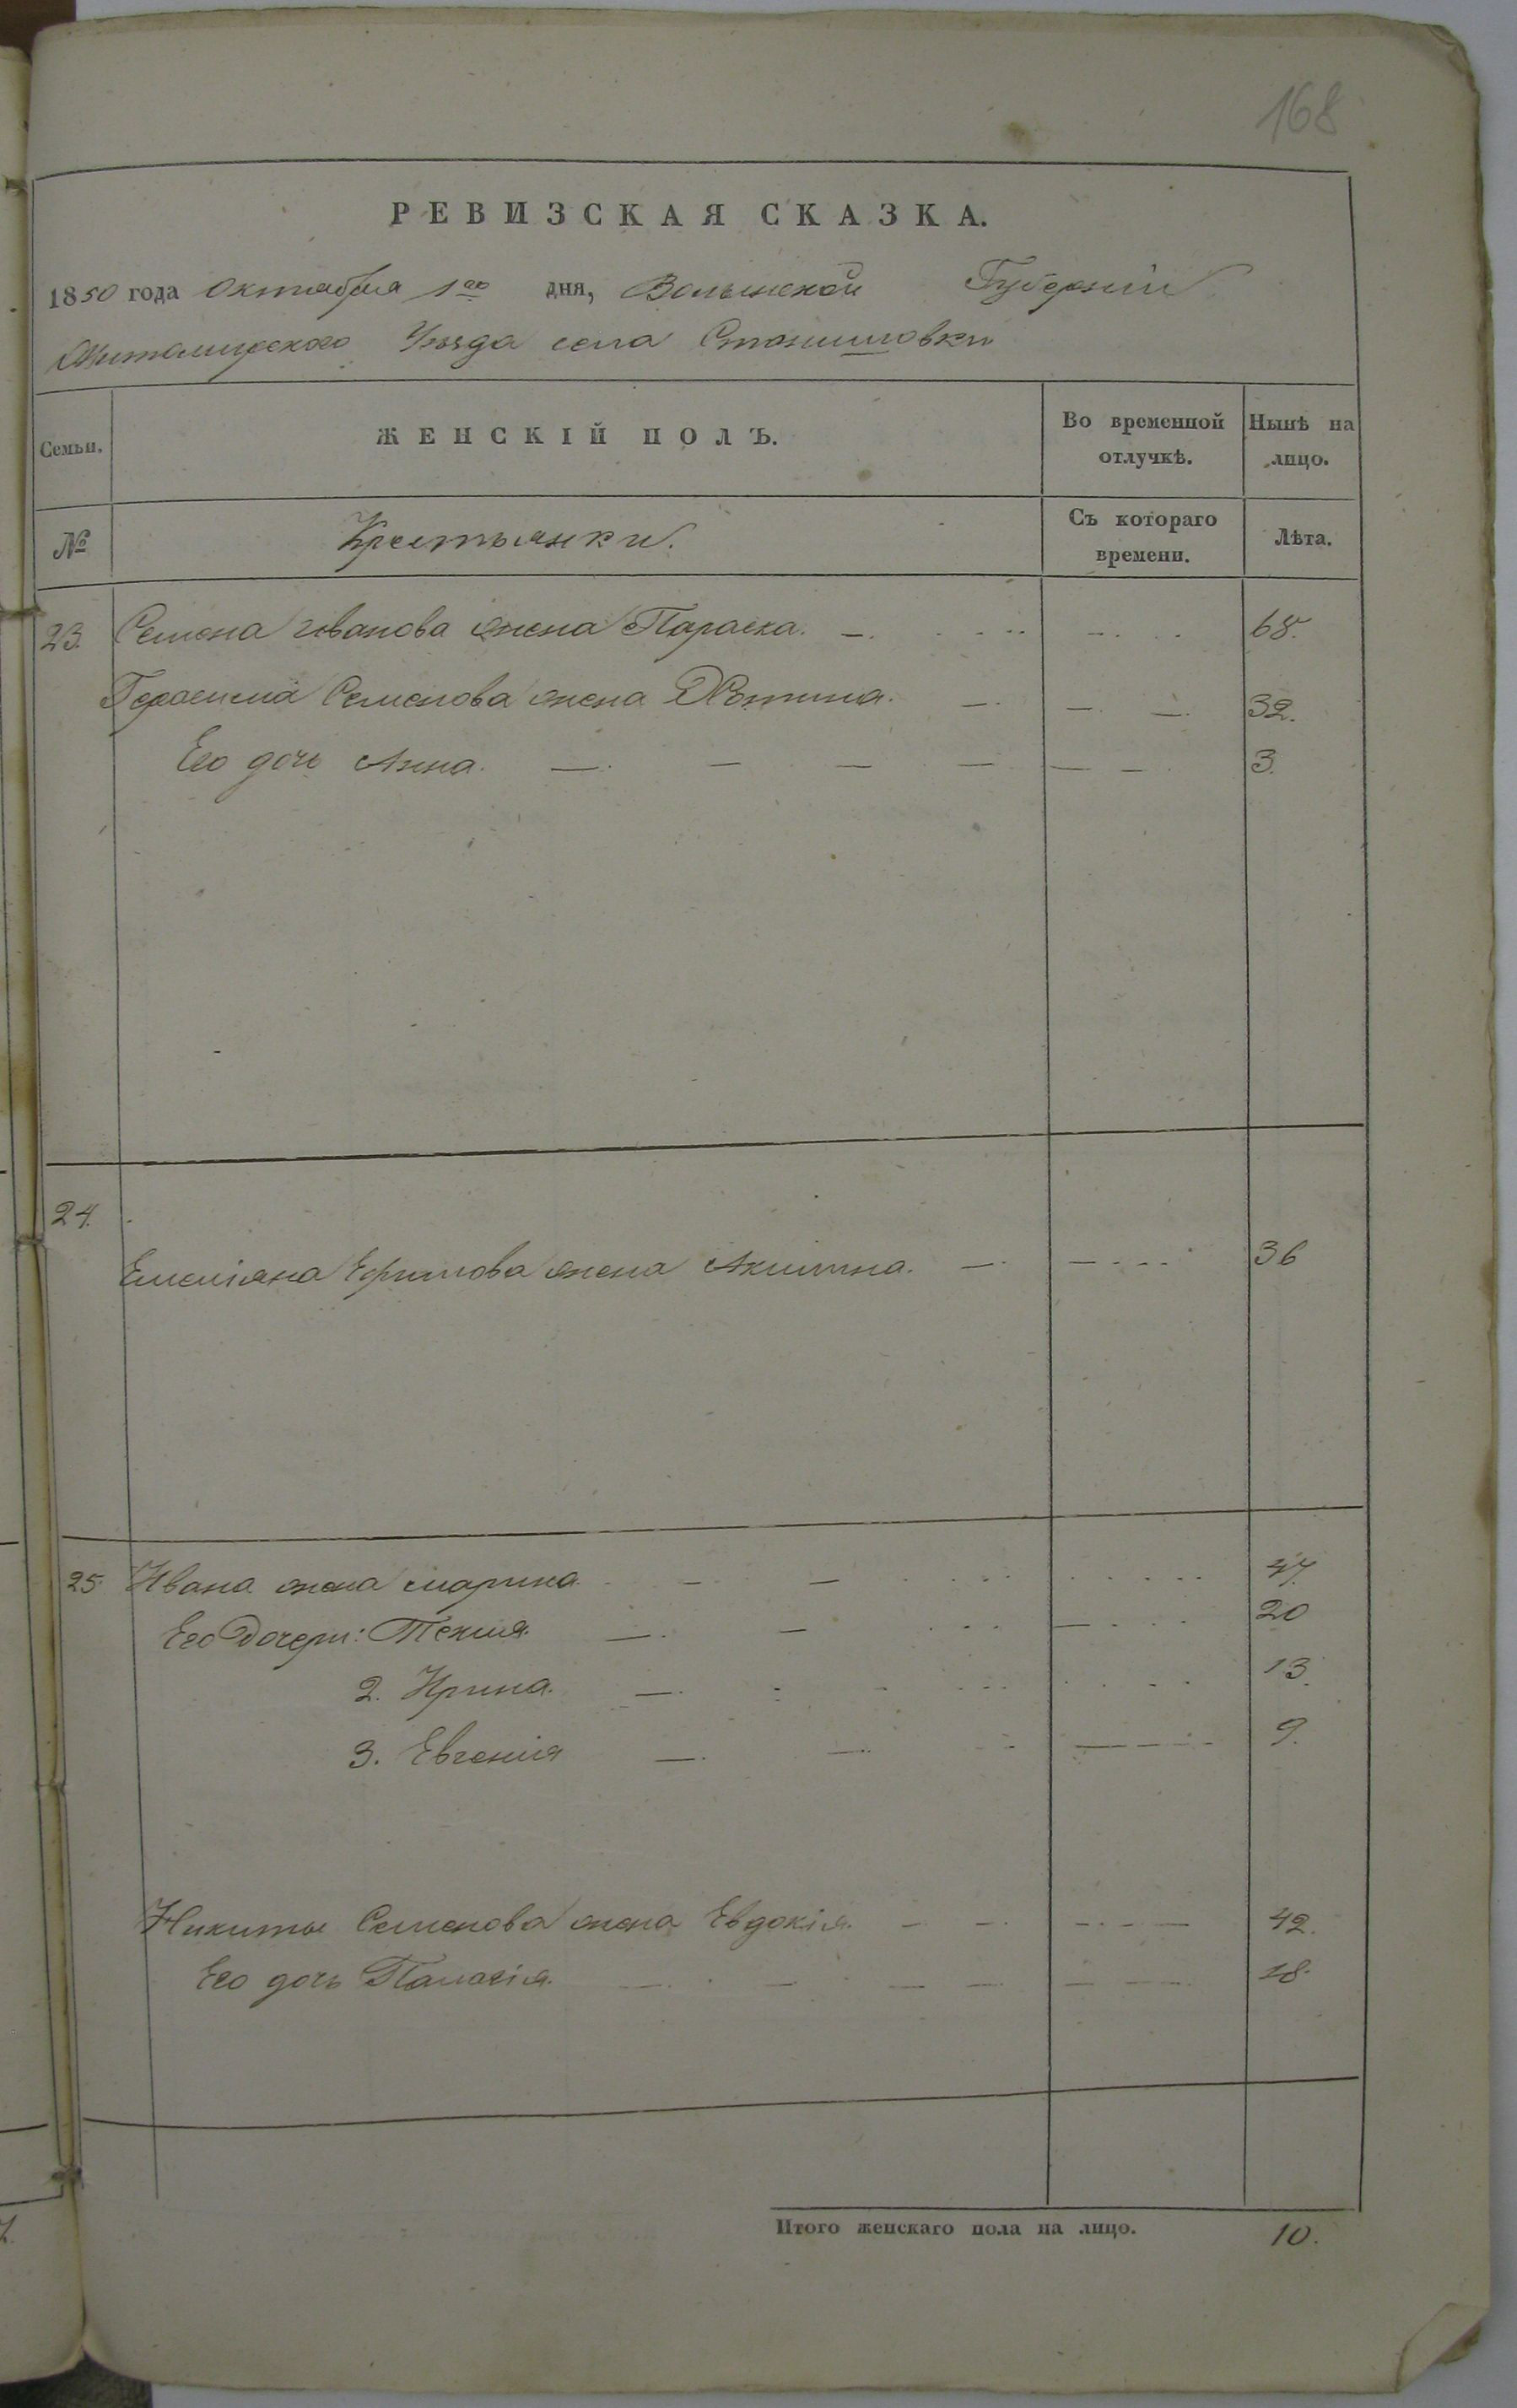 168
РЕВИЗСКАЯ СКАЗКА.
1850 года Октября 1го дня, Волынской Губерніи
Житомирского Уѣзда села Станишовки
Семьи. ЖЕНСКІЙ ПОЛЪ. Во временной отлучкѣ. Нынѣ на лицо.
№ Крестьянки. Съ котораго времени. Лѣта.
23. Семена Иванова жена Параска. 68.
Герасима Семенова жена 32.
Его дочь Анна. 3.
24.
Емеліяна Ефимова жена Акилина. 36
25. Ивана жена Марина. 47.
Его Дочери: Текля. 20
2. Ирина. 13.
3. Евгенія 9.
Никиты Семенова жена Евдокія. 42.
Его дочь Палагія. 18.
Итого женскаго пола на лицо. 10.